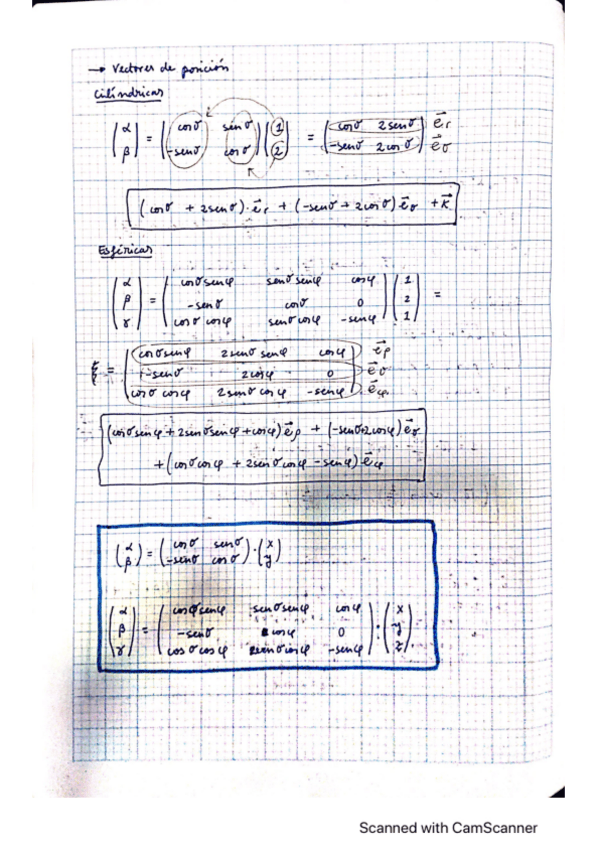 → Vectores de posición
Cilíndricas
(α β) = (cosσ senσ -senσ cosσ)(1 2) = (cosσ 2senσ -senσ 2cosσ) e⃗r e⃗σ
(cosσ + 2senσ)·e⃗r + (-senσ + 2cosσ) e⃗σ + k⃗
Esféricas
(α β γ) = (cosσ senφ senσ senφ cosφ -senσ cosσ 0 cosσ cosφ senσ cosφ -senφ)(1 2 1) =
= (cosσ senφ 2senσ senφ cosφ -senσ 2cosφ 0 cosσ cosφ 2senσ cosφ -senφ) e⃗ρ e⃗σ e⃗φ
(cosσ senφ + 2senσ senφ + cosφ) e⃗ρ + (-senσ+2cosφ) e⃗σ
+ (cosσ cosφ + 2senσ cosφ - senφ) e⃗φ
(α β) = (cosσ senσ -senσ cosσ)·(x y)
(α β γ) = (cosσ senφ senσ senφ cosφ -senσ cosφ 0 cosσ cosφ senσ cosφ -senφ)·(x y z)
Scanned with CamScanner